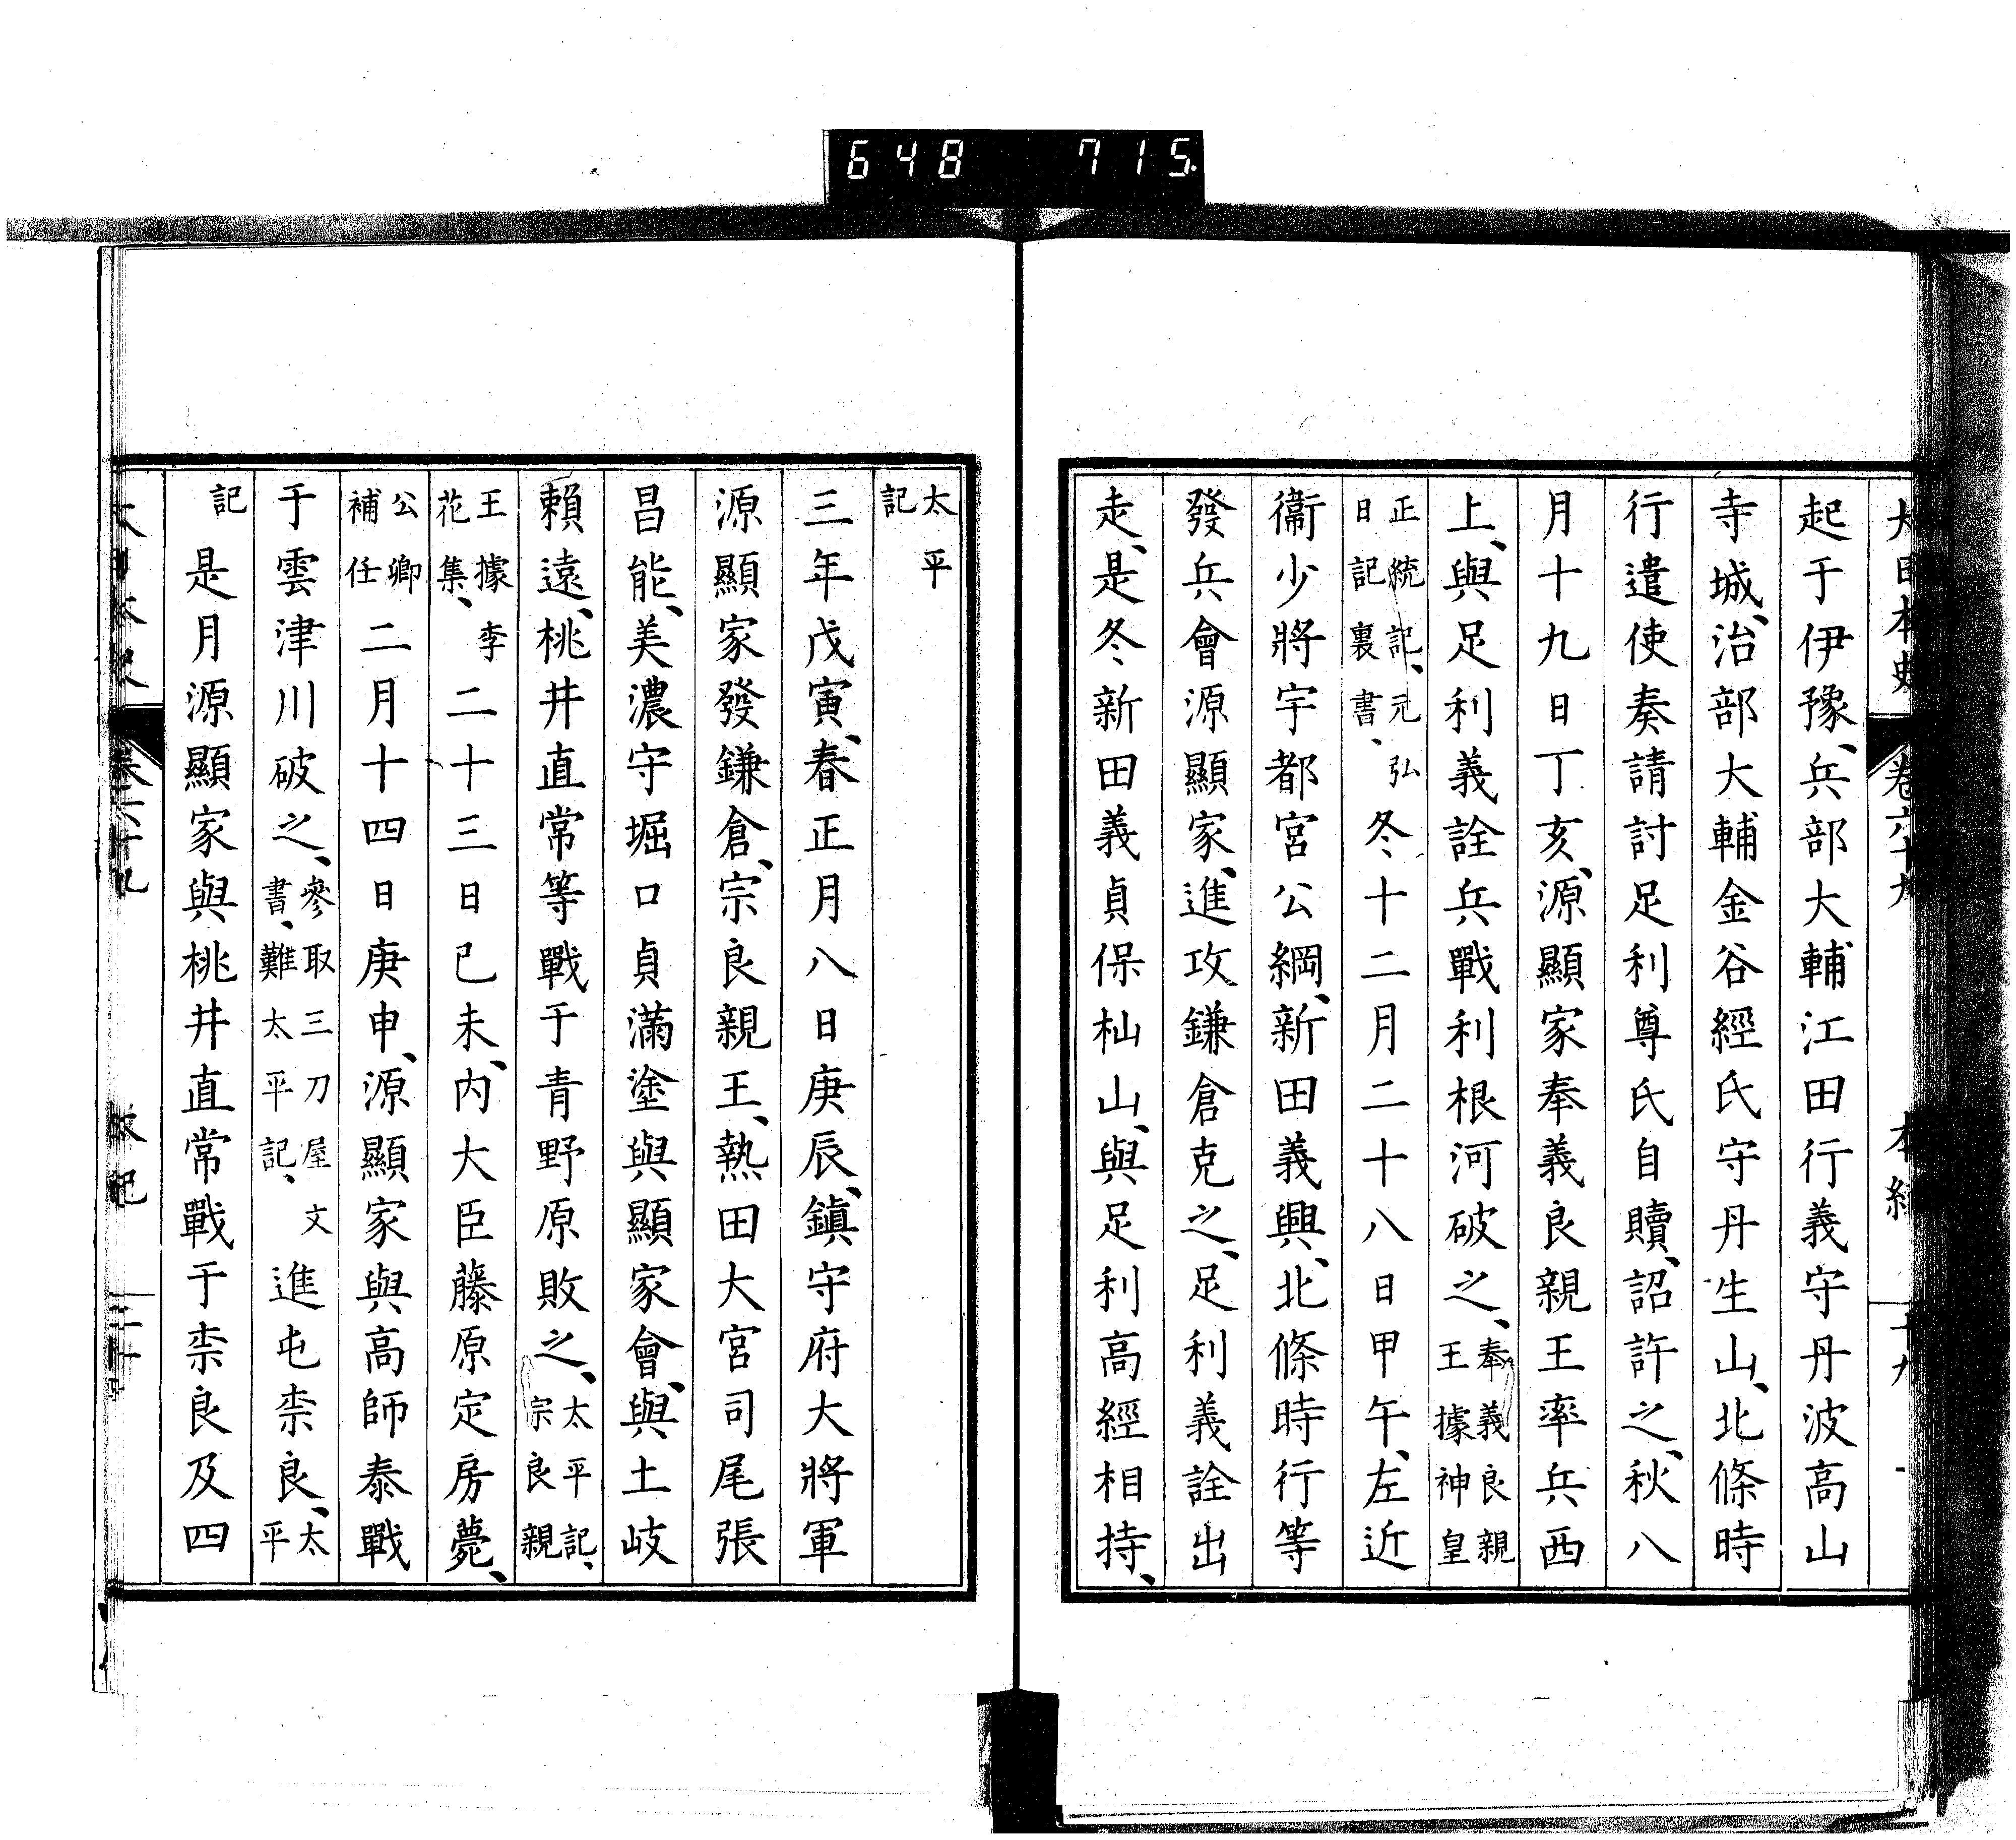 648 715.
大日本史 卷六十九 本紀
起于伊豫、兵部大輔江田行義守丹波高山
寺城、治部大輔金谷經氏守丹生山、北條時
行遣使奏請討足利尊氏自贖、詔許之、秋八
月十九日丁亥、源顯家奉義良親王率兵西
上、與足利義詮兵戰利根河破之、奉義良親王據神皇
正統記、元弘日記裏書、冬十二月二十八日甲午、左近
衞少將宇都宮公綱、新田義興、北條時行等
發兵會源顯家、進攻鎌倉克之、足利義詮出
走、是冬新田義貞保杣山、與足利高經相持、
太平記
三年戊寅、春正月八日庚辰、鎭守府大將軍
源顯家發鎌倉、宗良親王、熱田大宮司尾張
昌能、美濃守堀口貞滿塗與顯家會、與土岐
賴遠、桃井直常等戰于青野原敗之、太平記、宗良親
王據李花集、二十三日己未、內大臣藤原定房薨、
公卿補任二月十四日庚申、源顯家與高師泰戰
于雲津川破之、參取三刀屋文書、難太平記、進屯柰良、太平
記是月源顯家與桃井直常戰于柰良及四